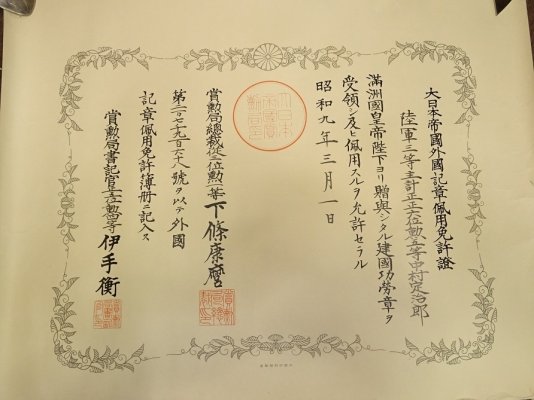 大日本帝國外國記章佩用免許證
陸軍三等主計正正六位勲五等中村定治郎
滿洲國皇帝陛下ヨリ贈與シタル建國功勞章ヲ
受領シ及ヒ佩用スルヲ允許セラル
昭和九年三月一日
賞勲局總裁從三位勲一等下條康麿
第二〇七九百六十八號ヲ以テ外國
記章佩用免許薄册ニ記入ス
賞勲局書記官正五位勲四等伊手衡